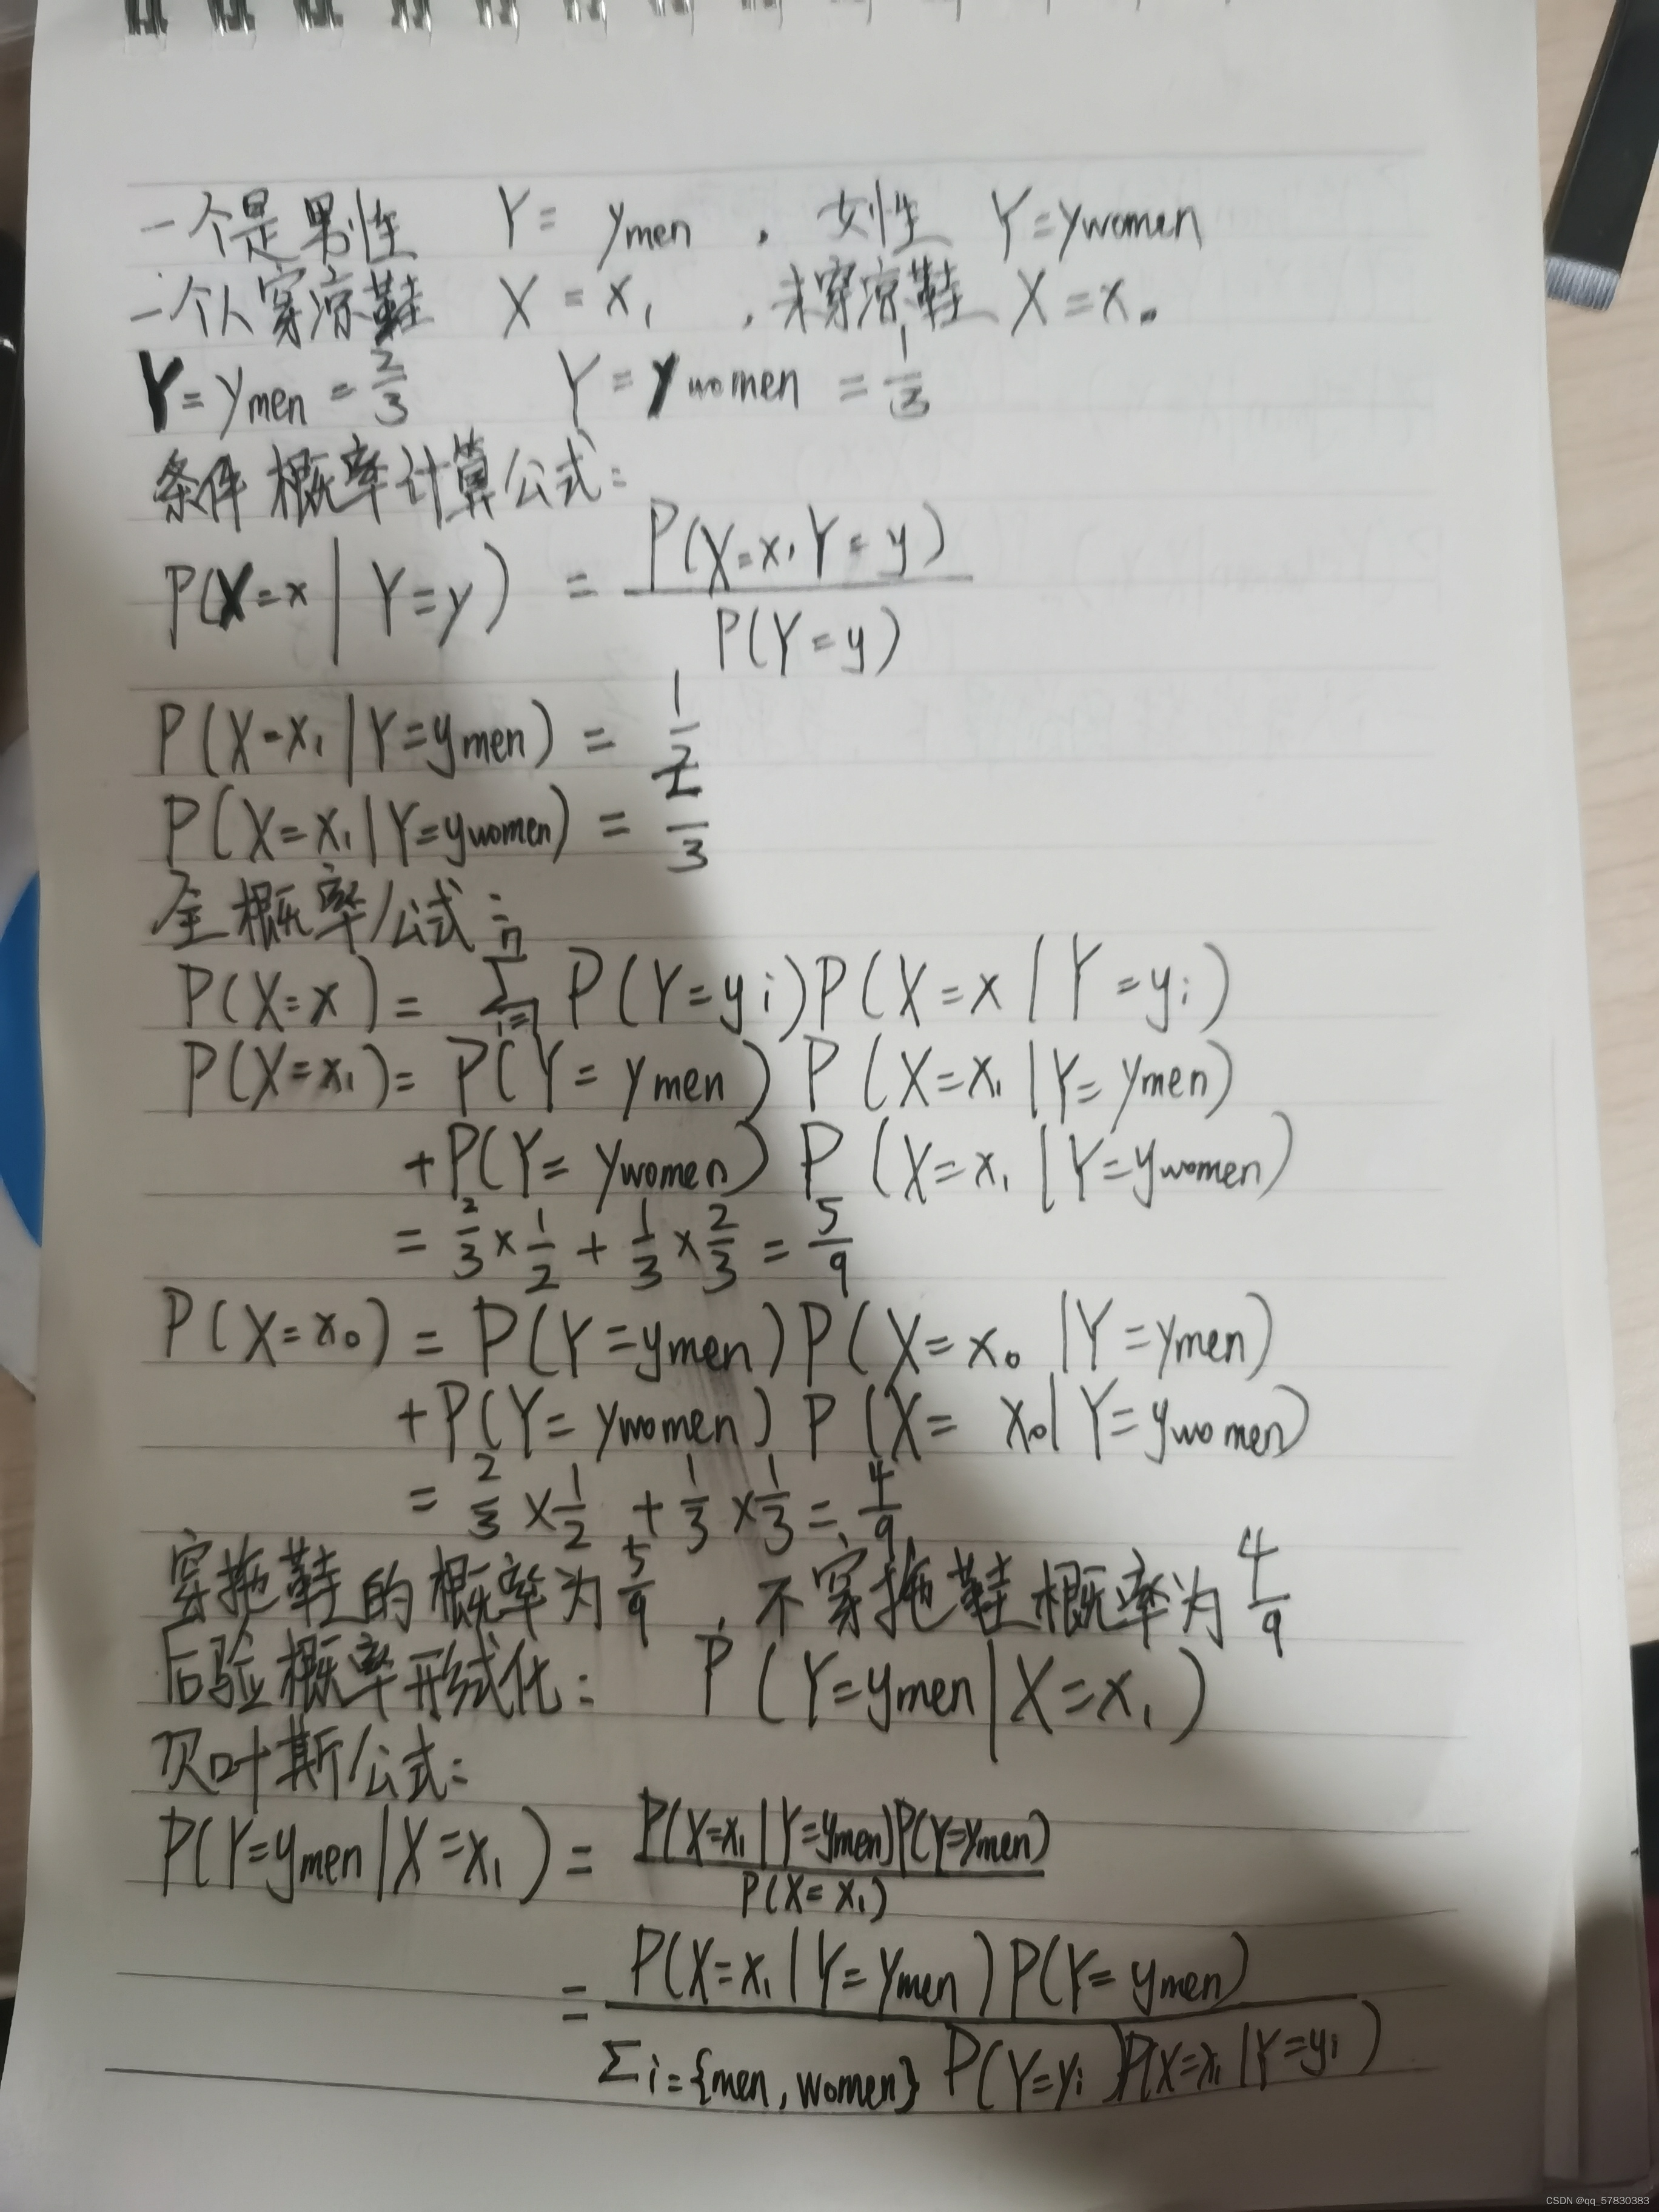 一个是男性 Y = ymen , 女性 Y=ywomen
一个人穿凉鞋 X = x₁ , 未穿凉鞋 X = x₀
Y = ymen = 2/3 Y = ywomen = 1/3
条件概率计算公式:
P(X=x | Y=y) = P(X=x, Y=y) / P(Y=y)
P(X=x₁ | Y=ymen) = 1/2
P(X=x₁ | Y=ywomen) = 2/3
全概率公式:
P(X=x) = Σⁿᵢ₌₁ P(Y=yi)P(X=x | Y=yi)
P(X=x₁) = P(Y=ymen) P(X=x₁ | Y=ymen)
+P(Y=ywomen) P(X=x₁ | Y=ywomen)
= 2/3 × 1/2 + 1/3 × 2/3 = 5/9
P(X=x₀) = P(Y=ymen)P(X=x₀ | Y=ymen)
+P(Y=ywomen) P(X=x₀ | Y=ywomen)
= 2/3 × 1/2 + 1/3 × 1/3 = 4/9
穿拖鞋的概率为5/9 , 不穿拖鞋概率为4/9
后验概率形式化: P(Y=ymen | X=x₁)
贝叶斯公式:
P(Y=ymen | X=x₁) = P(X=x₁ | Y=ymen)P(Y=ymen) / P(X=x₁)
= P(X=x₁ | Y=ymen)P(Y=ymen) / Σi={men, women} P(Y=yi)P(X=x₁ | Y=yi)
CSDN @qq_57830383